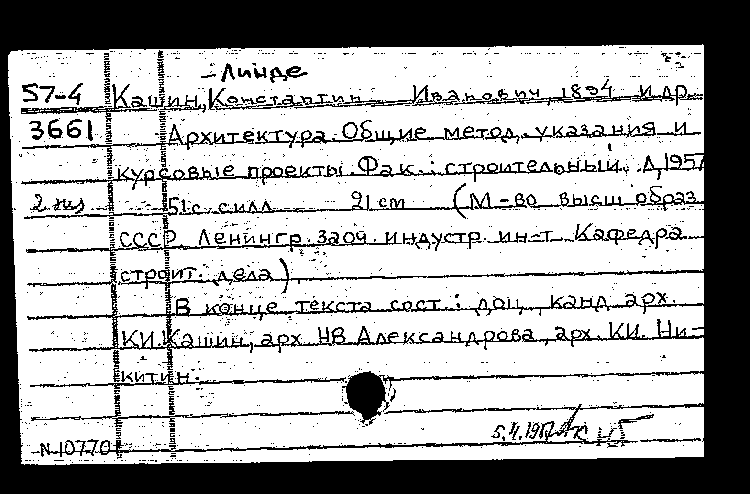 -Линде
57-4 Кашин, Константин Иванович, 1894 и др.
3661 Архитектура. Общие метод. указания и
курсовые проекты. Фак.: строительный. Л, 1957
2 экз 51 с. с илл 21 см (М-во высш образ
СССР. Ленингр. заоч. индустр. ин-т. Кафедра
строит. дела).
В конце текста сост.: доц, канд арх.
К.И. Кашин, арх. Н.В Александрова, арх. К.И. Ни-
китин.
N 10770